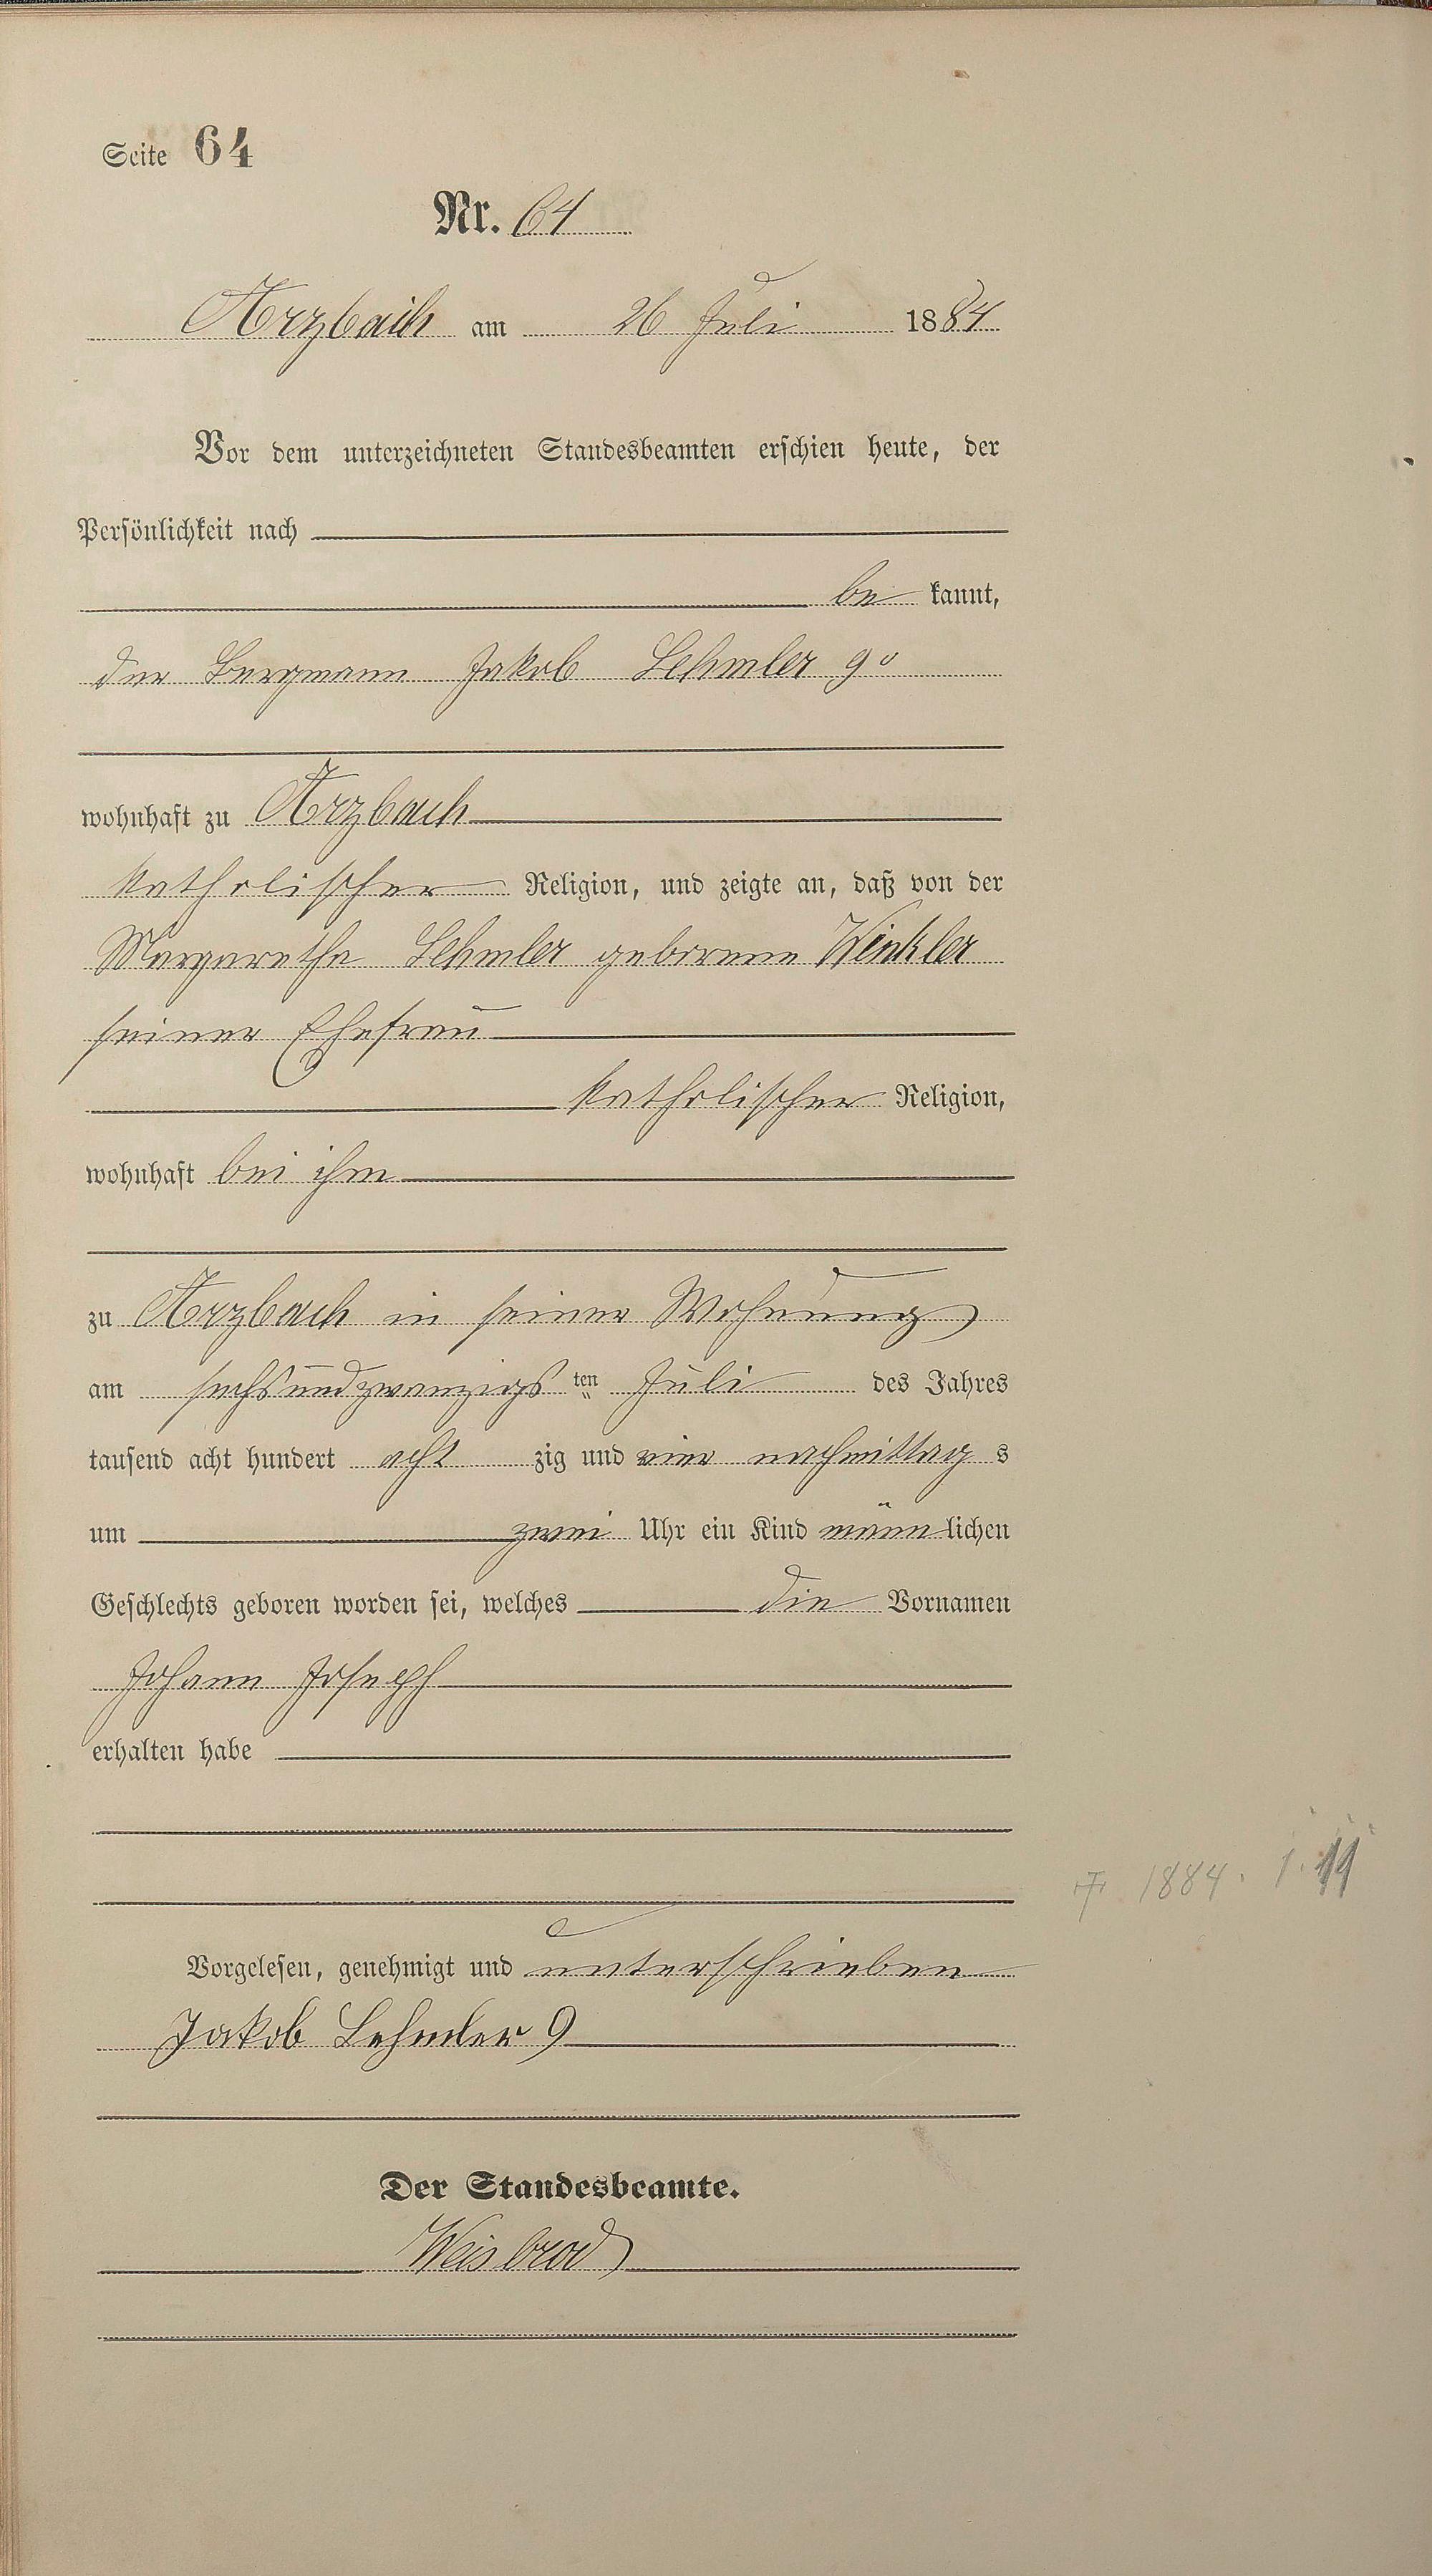 Seite 64
Nr. 64
Arzbach am 26 Juli 1884
Vor dem unterzeichneten Standesbeamten erschien heute, der
Persönlichkeit nach
be kannt,
der Bergmann Jakob Lehmler 9r
wohnhaft zu Arzbach
katholischer Religion, und zeigte an, daß von der
Margarethe Lehmler geborene Winkler
seiner Ehefrau
katholischer Religion,
wohnhaft bei ihm
zu Arzbach in seiner Wohnung
am sechsundzwanzigs ten Juli des Jahres
tausend acht hundert acht zig und vier nachmittag s
um zwei Uhr ein Kind männ lichen
Geschlechts geboren worden sei, welches die Vornamen
Johann Joseph
erhalten habe
1884.
Vorgelesen, genehmigt und unterschrieben
Jakob Lehmler 9
Der Standesbeamte.
Weisbrod